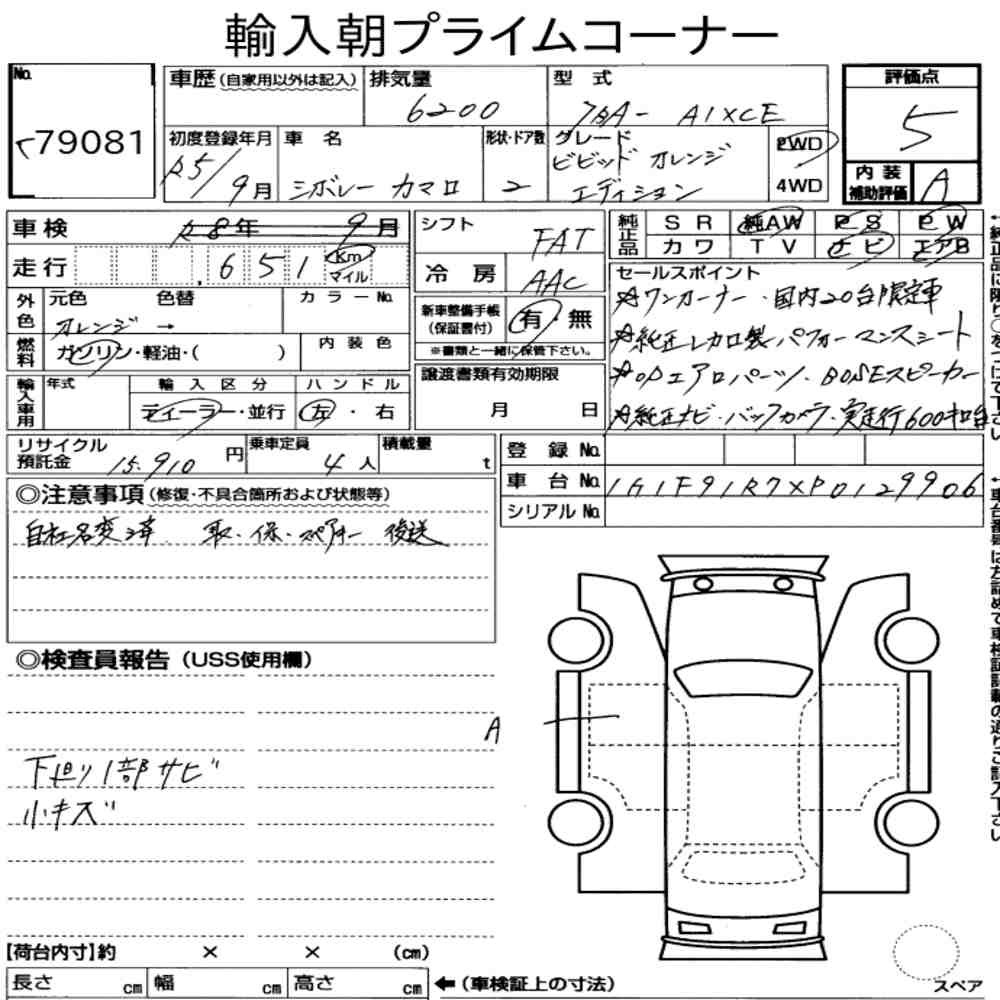 輸入朝プライムコーナー
No.
79081
車歴(自家用以外は記入)
排気量
6200
型式
7BA- A1XCE
評価点
5
初度登録年月
R5/9月
車名
シボレー カマロ
形状・ドア数
2
グレード
ビビッド オレンジ
エディション
2WD
4WD
内装
補助評価
A
車検
R8年 9月
シフト
FAT
純正品
SR 純AW PS PW
カワ TV ナビ エアB
走行
651
Km
マイル
冷房
AAC
セールスポイント
☆ワンオーナー・国内20台限定車
☆純正レカロ製パフォーマンスシート
☆OPエアロパーツ・BOSEスピーカー
☆純正ナビ・バックカメラ・実走行600キロ台
外色
元色 色替
オレンジ →
カラーNo.
新車整備手帳
(保証書付)
有・無
※書類と一緒に保管下さい。
燃料
ガソリン・軽油・( )
内装色
譲渡書類有効期限
月 日
輸入車用
年式
輸入区分
ディーラー・並行
ハンドル
左・右
リサイクル
預託金
15,910円
乗車定員
4人
積載量
t
登録No.
車台No.
1G1F91R7XP0129906
シリアルNo.
◎注意事項(修復・不具合箇所および状態等)
自社名変済 取・保・スペアキー 後送
◎検査員報告(USS使用欄)
A
下廻り1部サビ
小キズ
【荷台内寸】約 × × (cm)
長さ cm 幅 cm 高さ cm
←(車検証上の寸法)
スペア